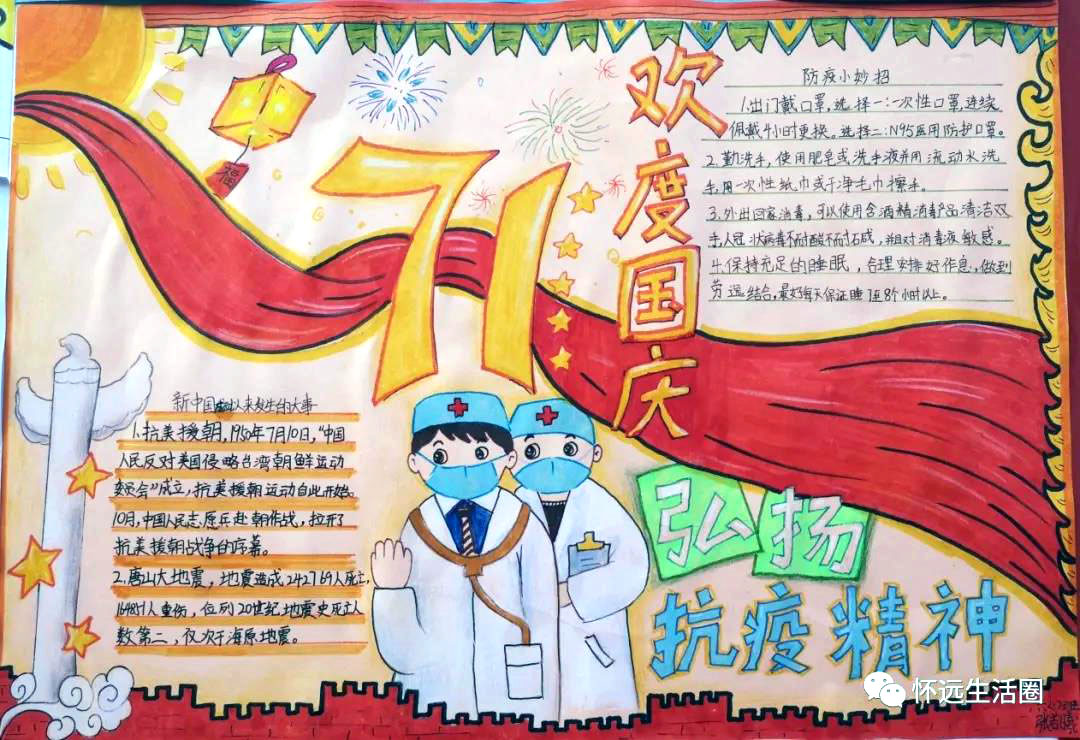 欢度国庆
71
福
防疫小妙招
1.出门戴口罩,选择一:一次性口罩,连续
佩戴4小时更换。选择二:N95医用防护口罩。
2.勤洗手,使用肥皂或洗手液并用流动水洗
手,用一次性纸巾或干净毛巾擦手。
3.外出回家消毒,可以使用含酒精消毒产品清洁双
手,冠状病毒不耐酸不耐碱,并且对消毒液敏感。
4.保持充足的睡眠,合理安排好作息,做到
劳逸结合,最好每天保证睡眠8个小时以上。
新中国以来发生的大事
1.抗美援朝,1950年7月10日,“中国
人民反对美国侵略台湾朝鲜运动
委员会”成立,抗美援朝运动自此开始。
10月,中国人民志愿兵赴朝作战,拉开了
抗美援朝战争的序幕。
2.唐山大地震,地震造成242769人死亡,
人重伤,位列20世纪地震史死亡人
数第二,仅次于海原地震。
弘扬
抗疫精神
怀远生活圈